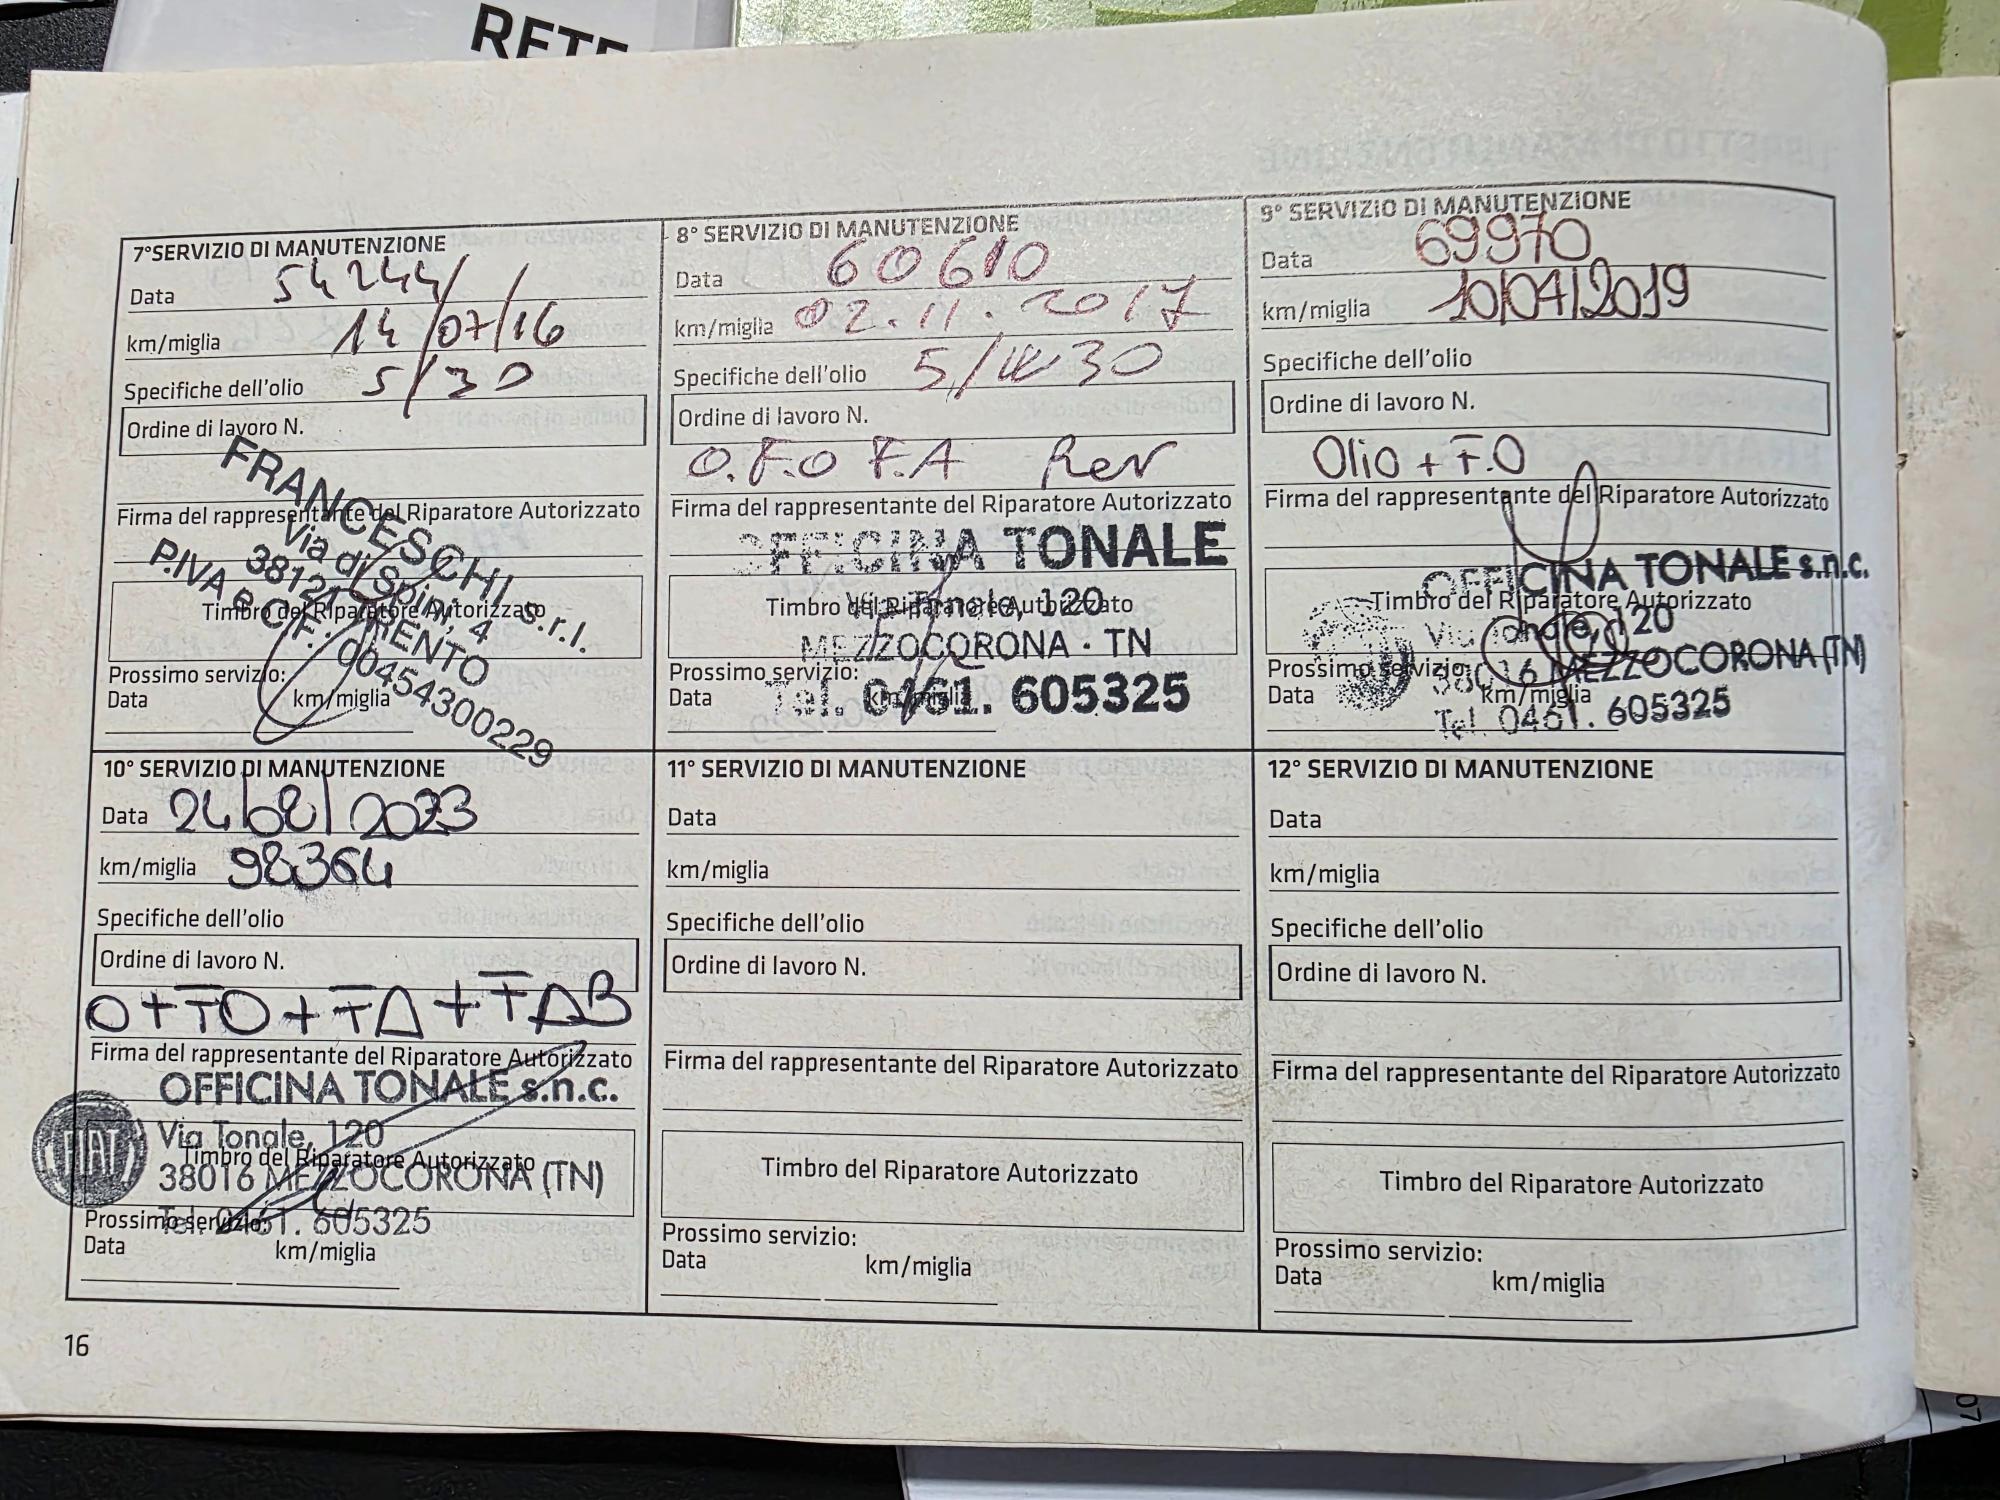 RETE
7°SERVIZIO DI MANUTENZIONE
Data 54244/
km/miglia 14/07/16
Specifiche dell'olio 5/30
Ordine di lavoro N.
Firma del rappresentante del Riparatore Autorizzato
FRANCESCHI s.r.l.
Via di Spini, 4
38121 TRENTO
P.IVA e C.F. 00454300229
Timbro del Riparatore Autorizzato
Prossimo servizio:
Data km/miglia
8° SERVIZIO DI MANUTENZIONE
Data 60610
km/miglia 02.11.2017
Specifiche dell'olio 5/W30
Ordine di lavoro N.
O.F.O F.A Rev
Firma del rappresentante del Riparatore Autorizzato
OFFICINA TONALE
Via Tonale, 120
Timbro del Riparatore Autorizzato
MEZZOCORONA - TN
Prossimo servizio:
Tel. 0461. 605325
Data km/miglia
9° SERVIZIO DI MANUTENZIONE
Data 69970
km/miglia 10/04/2019
Specifiche dell'olio
Ordine di lavoro N.
Olio + F.O
Firma del rappresentante del Riparatore Autorizzato
OFFICINA TONALE s.n.c.
Timbro del Riparatore Autorizzato
Via Tonale, 120
38016 MEZZOCORONA (TN)
Prossimo servizio:
Data km/miglia
Tel. 0461. 605325
10° SERVIZIO DI MANUTENZIONE
Data 24/08/2023
km/miglia 98364
Specifiche dell'olio
Ordine di lavoro N.
O+FO+FA+FAB
Firma del rappresentante del Riparatore Autorizzato
OFFICINA TONALE s.n.c.
FIAT
Via Tonale, 120
Timbro del Riparatore Autorizzato
38016 MEZZOCORONA (TN)
Prossimo servizio:
Tel. 0461. 605325
Data km/miglia
11° SERVIZIO DI MANUTENZIONE
Data
km/miglia
Specifiche dell'olio
Ordine di lavoro N.
Firma del rappresentante del Riparatore Autorizzato
Timbro del Riparatore Autorizzato
Prossimo servizio:
Data km/miglia
12° SERVIZIO DI MANUTENZIONE
Data
km/miglia
Specifiche dell'olio
Ordine di lavoro N.
Firma del rappresentante del Riparatore Autorizzato
Timbro del Riparatore Autorizzato
Prossimo servizio:
Data km/miglia
16
07